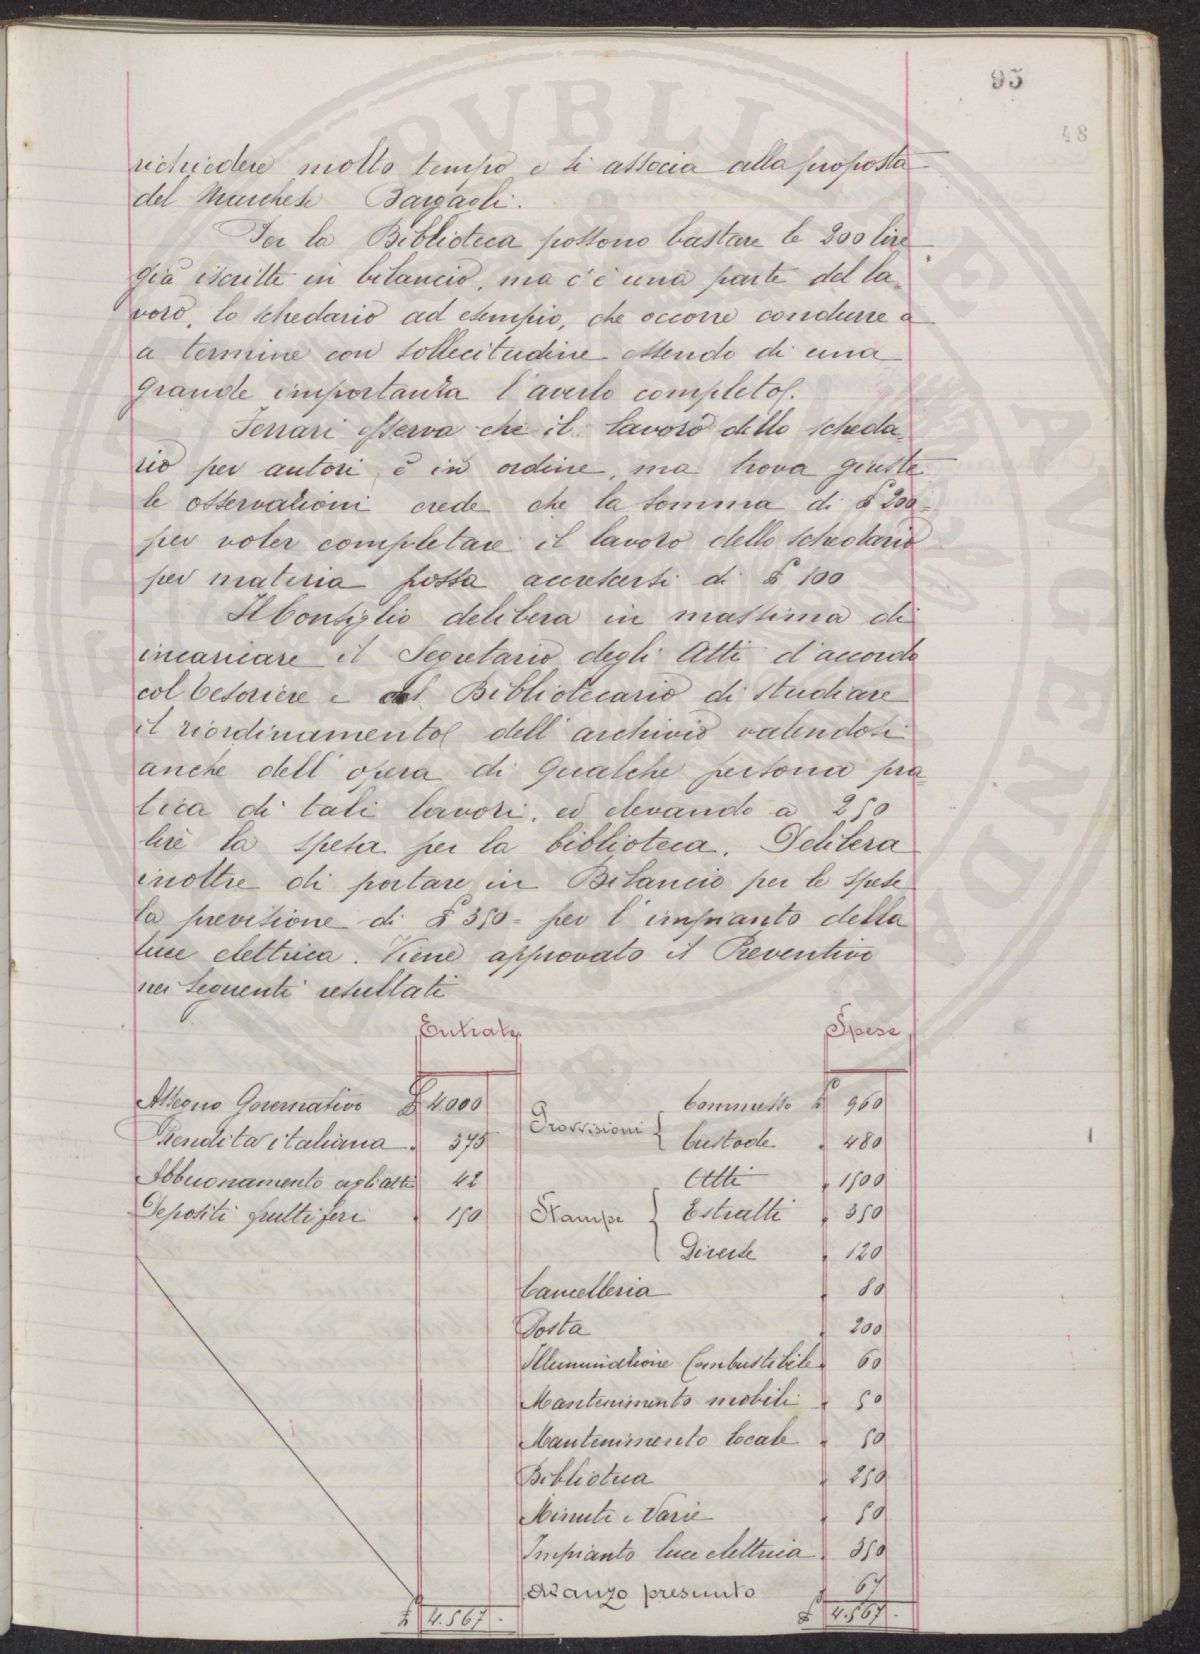 95
48
richiedere molto tempo e si associa alla proposta
del Marchese Bargagli.
Per la Biblioteca possono bastare le 200 lire
già iscritte in bilancio, ma c'è una parte del la=
voro, lo schedario ad esempio, che occorre condurre a
a termine con sollecitudine essendo di una
grande importanza l'averlo completo.
Ferrari osserva che il lavoro dello scheda=
rio per autori è in ordine, ma trova giuste
le osservazioni crede che la somma di £ 200=
per voler completare il lavoro dello schedario
per materia possa accrescersi di £ 100
Il Consiglio delibera in massima di
incaricare il Segretario degli Atti d'accordo
col Tesoriere e col Bibliotecario di studiare
il riordinamento dell'archivio valendosi
anche dell'opera di qualche persona pra=
tica di tali lavori, ed elevando a 250
lire la spesa per la biblioteca. Delibera
inoltre di portare in Bilancio per le spese
la previsione di £ 350= per l'impianto della
luce elettrica. Viene approvato il Preventivo
nei seguenti resultati
Entrate Spese
Assegno Governativo £ 4.000
Rendita italiana 375
Abbuonamento agli atti 42
Depositi fruttiferi 150
£ 4.567
Provvisioni { Commesso £ 960
Custode 480
Stampe { Atti 1500
Estratti 350
Diverse 120
Cancelleria 80
Posta 200
Illuminazione Combustibile 60
Mantenimento mobili 50
Mantenimento locale 50
Biblioteca 250
Minute e Varie 50
Impianto luce elettrica 350
Avanzo presunto 67
£ 4.567